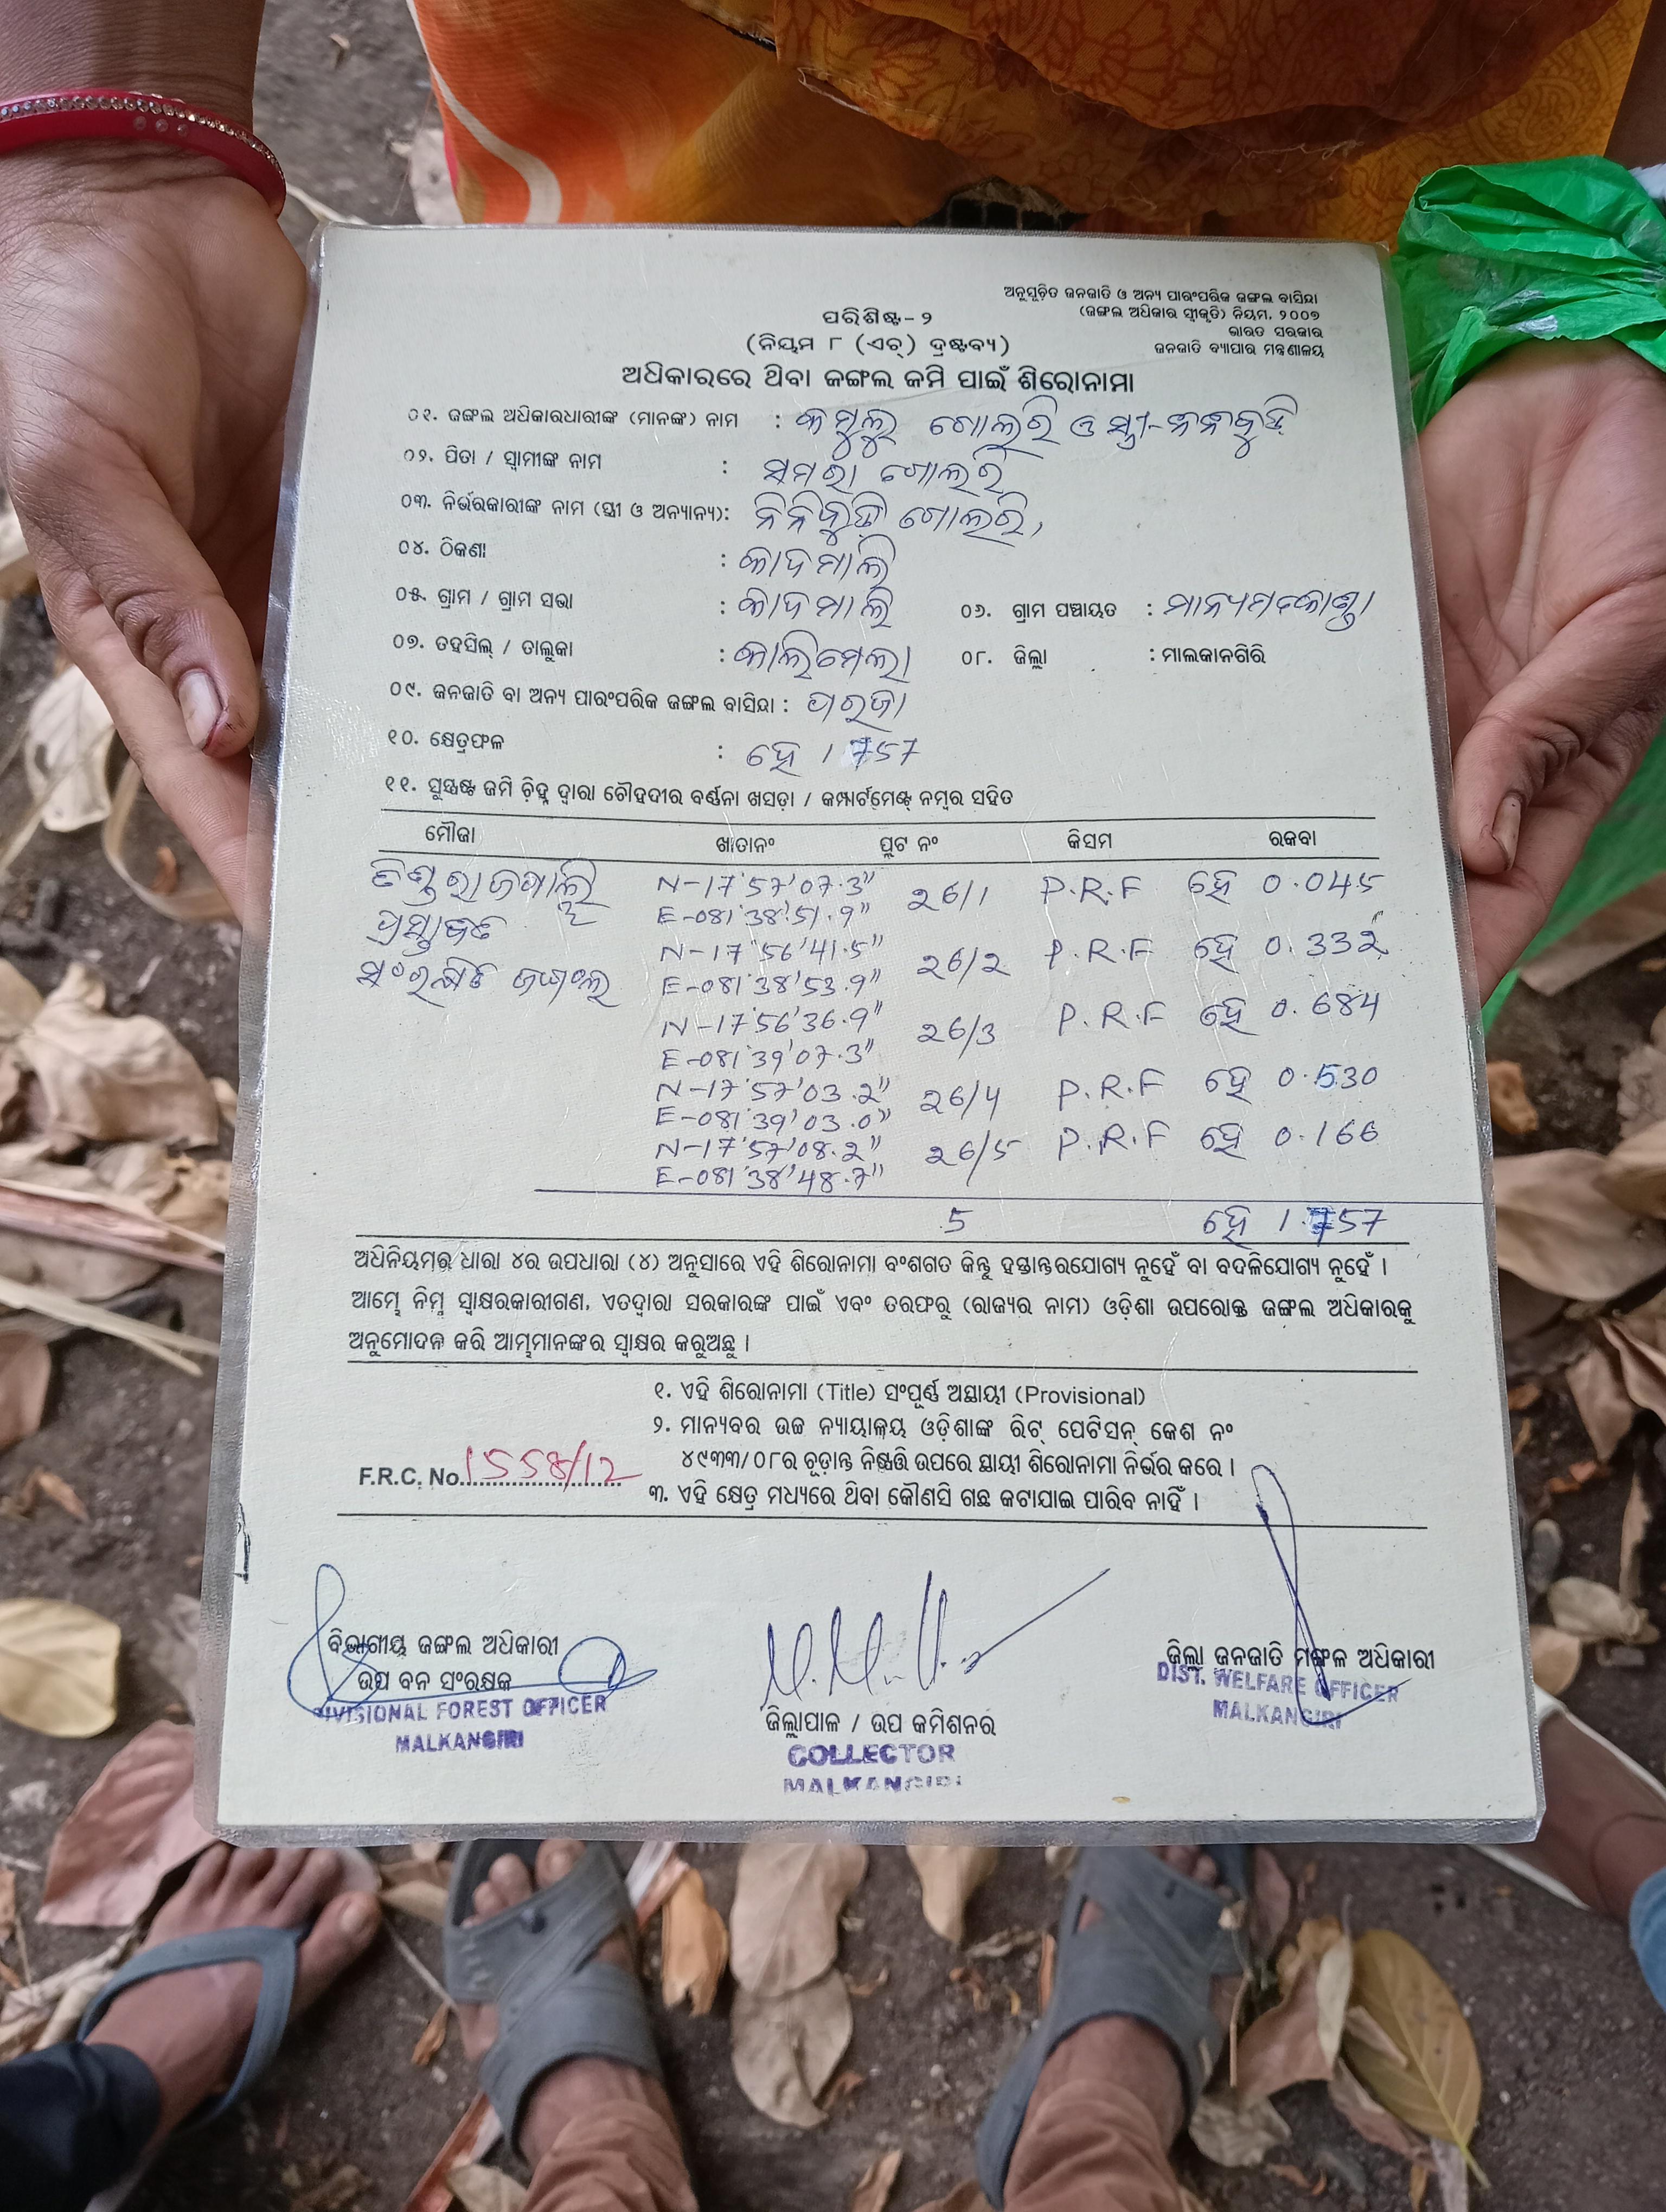 ଅନୁସୂଚିତ ଜନଜାତି ଓ ଅନ୍ୟ ପାରଂପରିକ ଜଙ୍ଗଲ ବାସିନ୍ଦା
(ଜଙ୍ଗଲ ଅଧିକାର ସ୍ୱୀକୃତି) ନିୟମ, ୨୦୦୭
ଭାରତ ସରକାର
ଜନଜାତି ବ୍ୟାପାର ମନ୍ତ୍ରଣାଳୟ
ପରିଶିଷ୍ଟ-୨
(ନିୟମ ୮ (ଏଚ୍) ଦ୍ରଷ୍ଟବ୍ୟ)
ଅଧିକାରରେ ଥିବା ଜଙ୍ଗଲ ଜମି ପାଇଁ ଶିରୋନାମା
୦୧. ଜଙ୍ଗଲ ଅଧିକାରଧାରୀଙ୍କ (ମାନଙ୍କ) ନାମ : ଗୋଲରି ଓ ସ୍ତ୍ରୀ-
୦୨. ପିତା / ସ୍ୱାମୀଙ୍କ ନାମ : ସମରା ଗୋଲରି
୦୩. ନିର୍ଭରକାରୀଙ୍କ ନାମ (ସ୍ତ୍ରୀ ଓ ଅନ୍ୟାନ୍ୟ): ଗୋଲରି,
୦୪. ଠିକଣା : କାଦମାଲି
୦୫. ଗ୍ରାମ / ଗ୍ରାମ ସଭା : କାଦମାଲି ୦୬. ଗ୍ରାମ ପଞ୍ଚାୟତ : ମାନ୍ୟମକୋଣ୍ଡା
୦୭. ତହସିଲ୍ / ତାଲୁକା : କାଲିମେଲା ୦୮. ଜିଲ୍ଲା : ମାଲକାନଗିରି
୦୯. ଜନଜାତି ବା ଅନ୍ୟ ପାରଂପରିକ ଜଙ୍ଗଲ ବାସିନ୍ଦା : ପରଜା
୧୦. କ୍ଷେତ୍ରଫଳ : ହେ 1.757
୧୧. ସୁସ୍ପଷ୍ଟ ଜମି ଚିହ୍ନ ଦ୍ୱାରା ଚୌହଦୀର ବର୍ଣ୍ଣନା ଖସଡ଼ା / କମ୍ପାର୍ଟମେଣ୍ଟ୍ ନମ୍ବର ସହିତ
ମୌଜା ଖାତାନଂ ପ୍ଲଟ ନଂ କିସମ ରକବା
N-17°57'07.3" 26/1 P.R.F ହେ 0.045
E-081°38'51.9"
ପ୍ରସ୍ତାବିତ
N-17°56'41.5" 26/2 P.R.F ହେ 0.332
ସଂରକ୍ଷିତ ଜଙ୍ଗଲ E-081°38'53.9"
N-17°56'36.9" 26/3 P.R.F ହେ 0.684
E-081°39'07.3"
N-17°57'03.2" 26/4 P.R.F ହେ 0.530
E-081°39'03.0"
N-17°57'08.2" 26/5 P.R.F ହେ 0.166
E-081°38'48.7"
5 ହେ 1.757
ଅଧିନିୟମର ଧାରା ୪ର ଉପଧାରା (୪) ଅନୁସାରେ ଏହି ଶିରୋନାମା ବଂଶଗତ କିନ୍ତୁ ହସ୍ତାନ୍ତରଯୋଗ୍ୟ ନୁହେଁ ବା ବଦଳିଯୋଗ୍ୟ ନୁହେଁ ।
ଆମ୍ଭେ ନିମ୍ନ ସ୍ୱାକ୍ଷରକାରୀଗଣ, ଏତଦ୍ୱାରା ସରକାରଙ୍କ ପାଇଁ ଏବଂ ତରଫରୁ (ରାଜ୍ୟର ନାମ) ଓଡ଼ିଶା ଉପରୋକ୍ତ ଜଙ୍ଗଲ ଅଧିକାରକୁ
ଅନୁମୋଦନ କରି ଆମ୍ଭମାନଙ୍କର ସ୍ୱାକ୍ଷର କରୁଅଛୁ ।
୧. ଏହି ଶିରୋନାମା (Title) ସଂପୂର୍ଣ୍ଣ ଅସ୍ଥାୟୀ (Provisional)
୨. ମାନ୍ୟବର ଉଚ୍ଚ ନ୍ୟାୟାଳୟ ଓଡ଼ିଶାଙ୍କ ରିଟ୍ ପେଟିସନ୍ କେଶ ନଂ
୪୯୩୩/୦୮ର ଚୂଡ଼ାନ୍ତ ନିଷ୍ପତ୍ତି ଉପରେ ସ୍ଥାୟୀ ଶିରୋନାମା ନିର୍ଭର କରେ ।
F.R.C. No. 1558/12
୩. ଏହି କ୍ଷେତ୍ର ମଧ୍ୟରେ ଥିବା କୌଣସି ଗଛ କଟାଯାଇ ପାରିବ ନାହିଁ ।
ବିଭାଗୀୟ ଜଙ୍ଗଲ ଅଧିକାରୀ
ଉପ ବନ ସଂରକ୍ଷକ
DIVISIONAL FOREST OFFICER
MALKANGIRI
ଜିଲ୍ଲାପାଳ / ଉପ କମିଶନର
COLLECTOR
MALKANGIRI
ଜିଲ୍ଲା ଜନଜାତି ମଙ୍ଗଳ ଅଧିକାରୀ
DIST. WELFARE OFFICER
MALKANGIRI